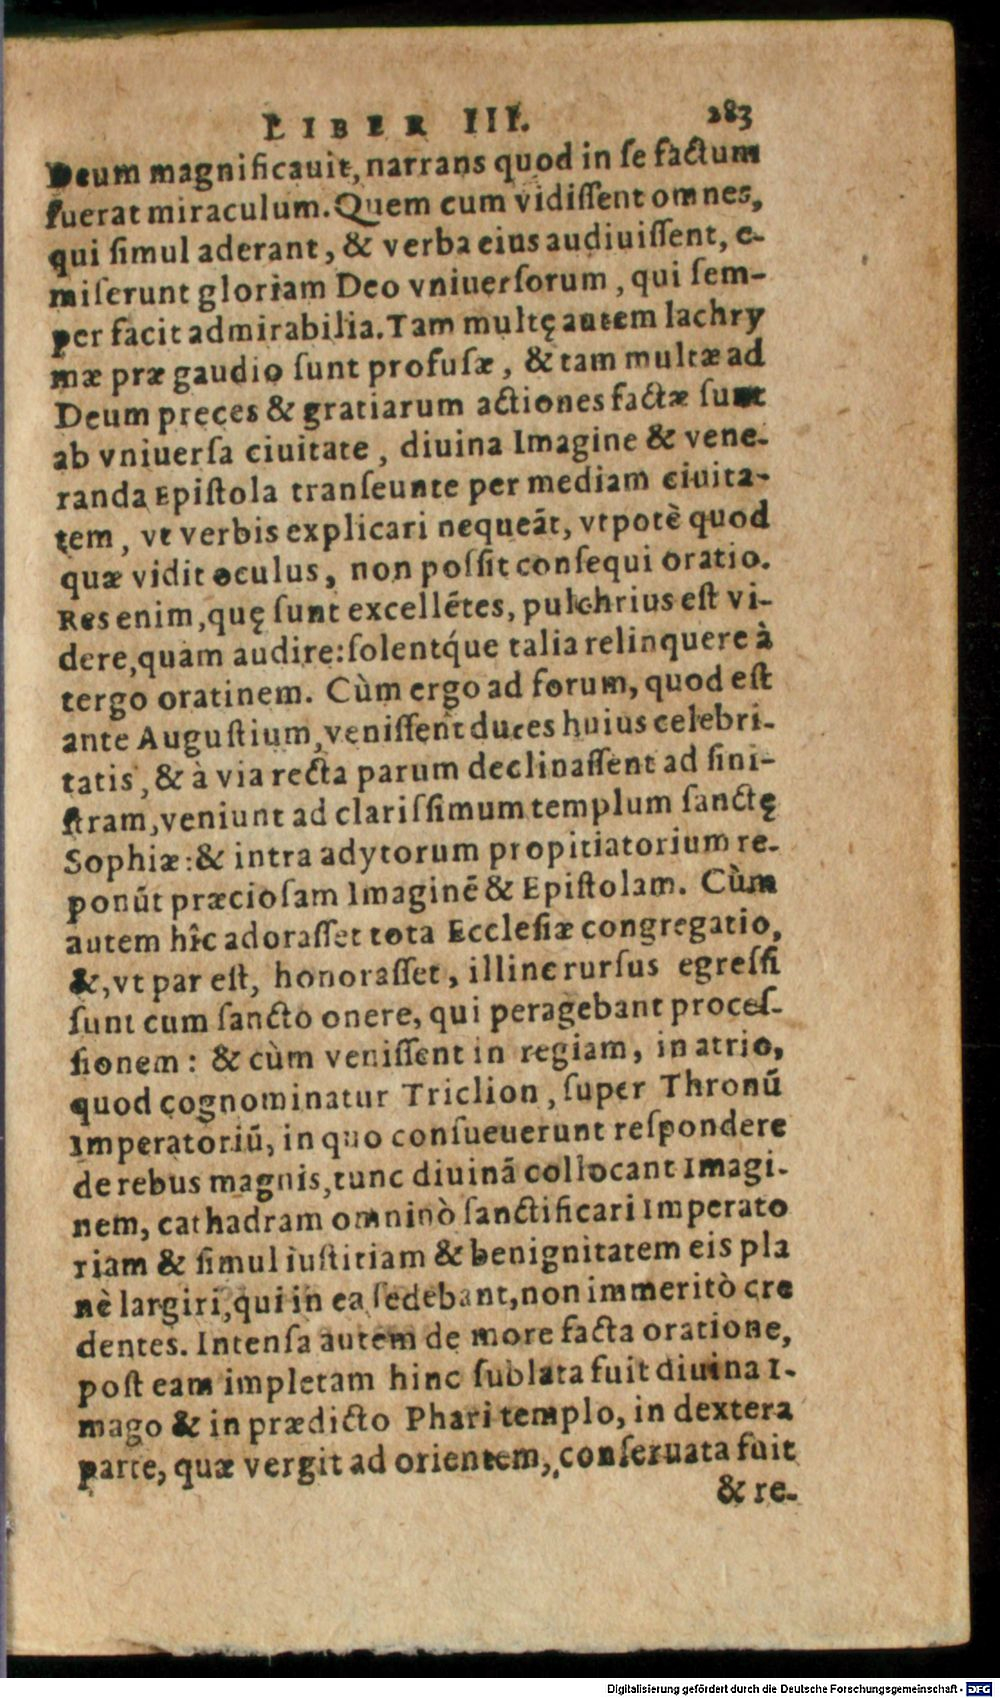 LIBER III. 283
Deum magnificauit, narrans quod in se factum
fuerat miraculum. Quem cum vidissent omnes,
qui simul aderant, & verba eius audiuissent, e-
miserunt gloriam Deo vniuersorum, qui sem-
per facit admirabilia. Tam multę autem lachry
mæ præ gaudio sunt profusæ, & tam multæ ad
Deum preces & gratiarum actiones factæ sunt
ab vniuersa ciuitate, diuina Imagine & vene-
randa Epistola transeunte per mediam ciuita-
tem, vt verbis explicari nequeāt, vtpotè quod
quæ vidit oculus, non possit consequi oratio.
Res enim, quę sunt excellētes, pulchrius est vi-
dere, quàm audire: solentq́ue talia relinquere à
tergo oratinem. Cùm ergo ad forum, quod est
ante Augustium, venissent duces huius celebri-
tatis, & à via recta parum declinassent ad sini-
stram, veniunt ad clarissimum templum sanctę
Sophiæ: & intra adytorum propitiatorium re-
ponūt præciosam Imaginē & Epistolam. Cùm
autem hîc adorasset tota Ecclesiæ congregatio,
&, vt par est, honorasset, illinc rursus egressi
sunt cum sancto onere, qui peragebant proces-
sionem: & cùm venissent in regiam, in atrio,
quod cognominatur Triclion, super Thronū
Imperatoriū, in quo consueuerunt respondere
de rebus magnis, tunc diuinā collocant Imagi-
nem, cathadram omninò sanctificari Imperato
riam & simul iustitiam & benignitatem eis pla
nè largiri, qui in ea sedebant, non immeritò cre
dentes. Intensa autem de more facta oratione,
post eam impletam hinc sublata fuit diuina I-
mago & in prædicto Phari templo, in dextera
parte, quæ vergit ad orientem, conseruata fuit
& re-
Digitalisierung gefördert durch die Deutsche Forschungsgemeinschaft - DFG